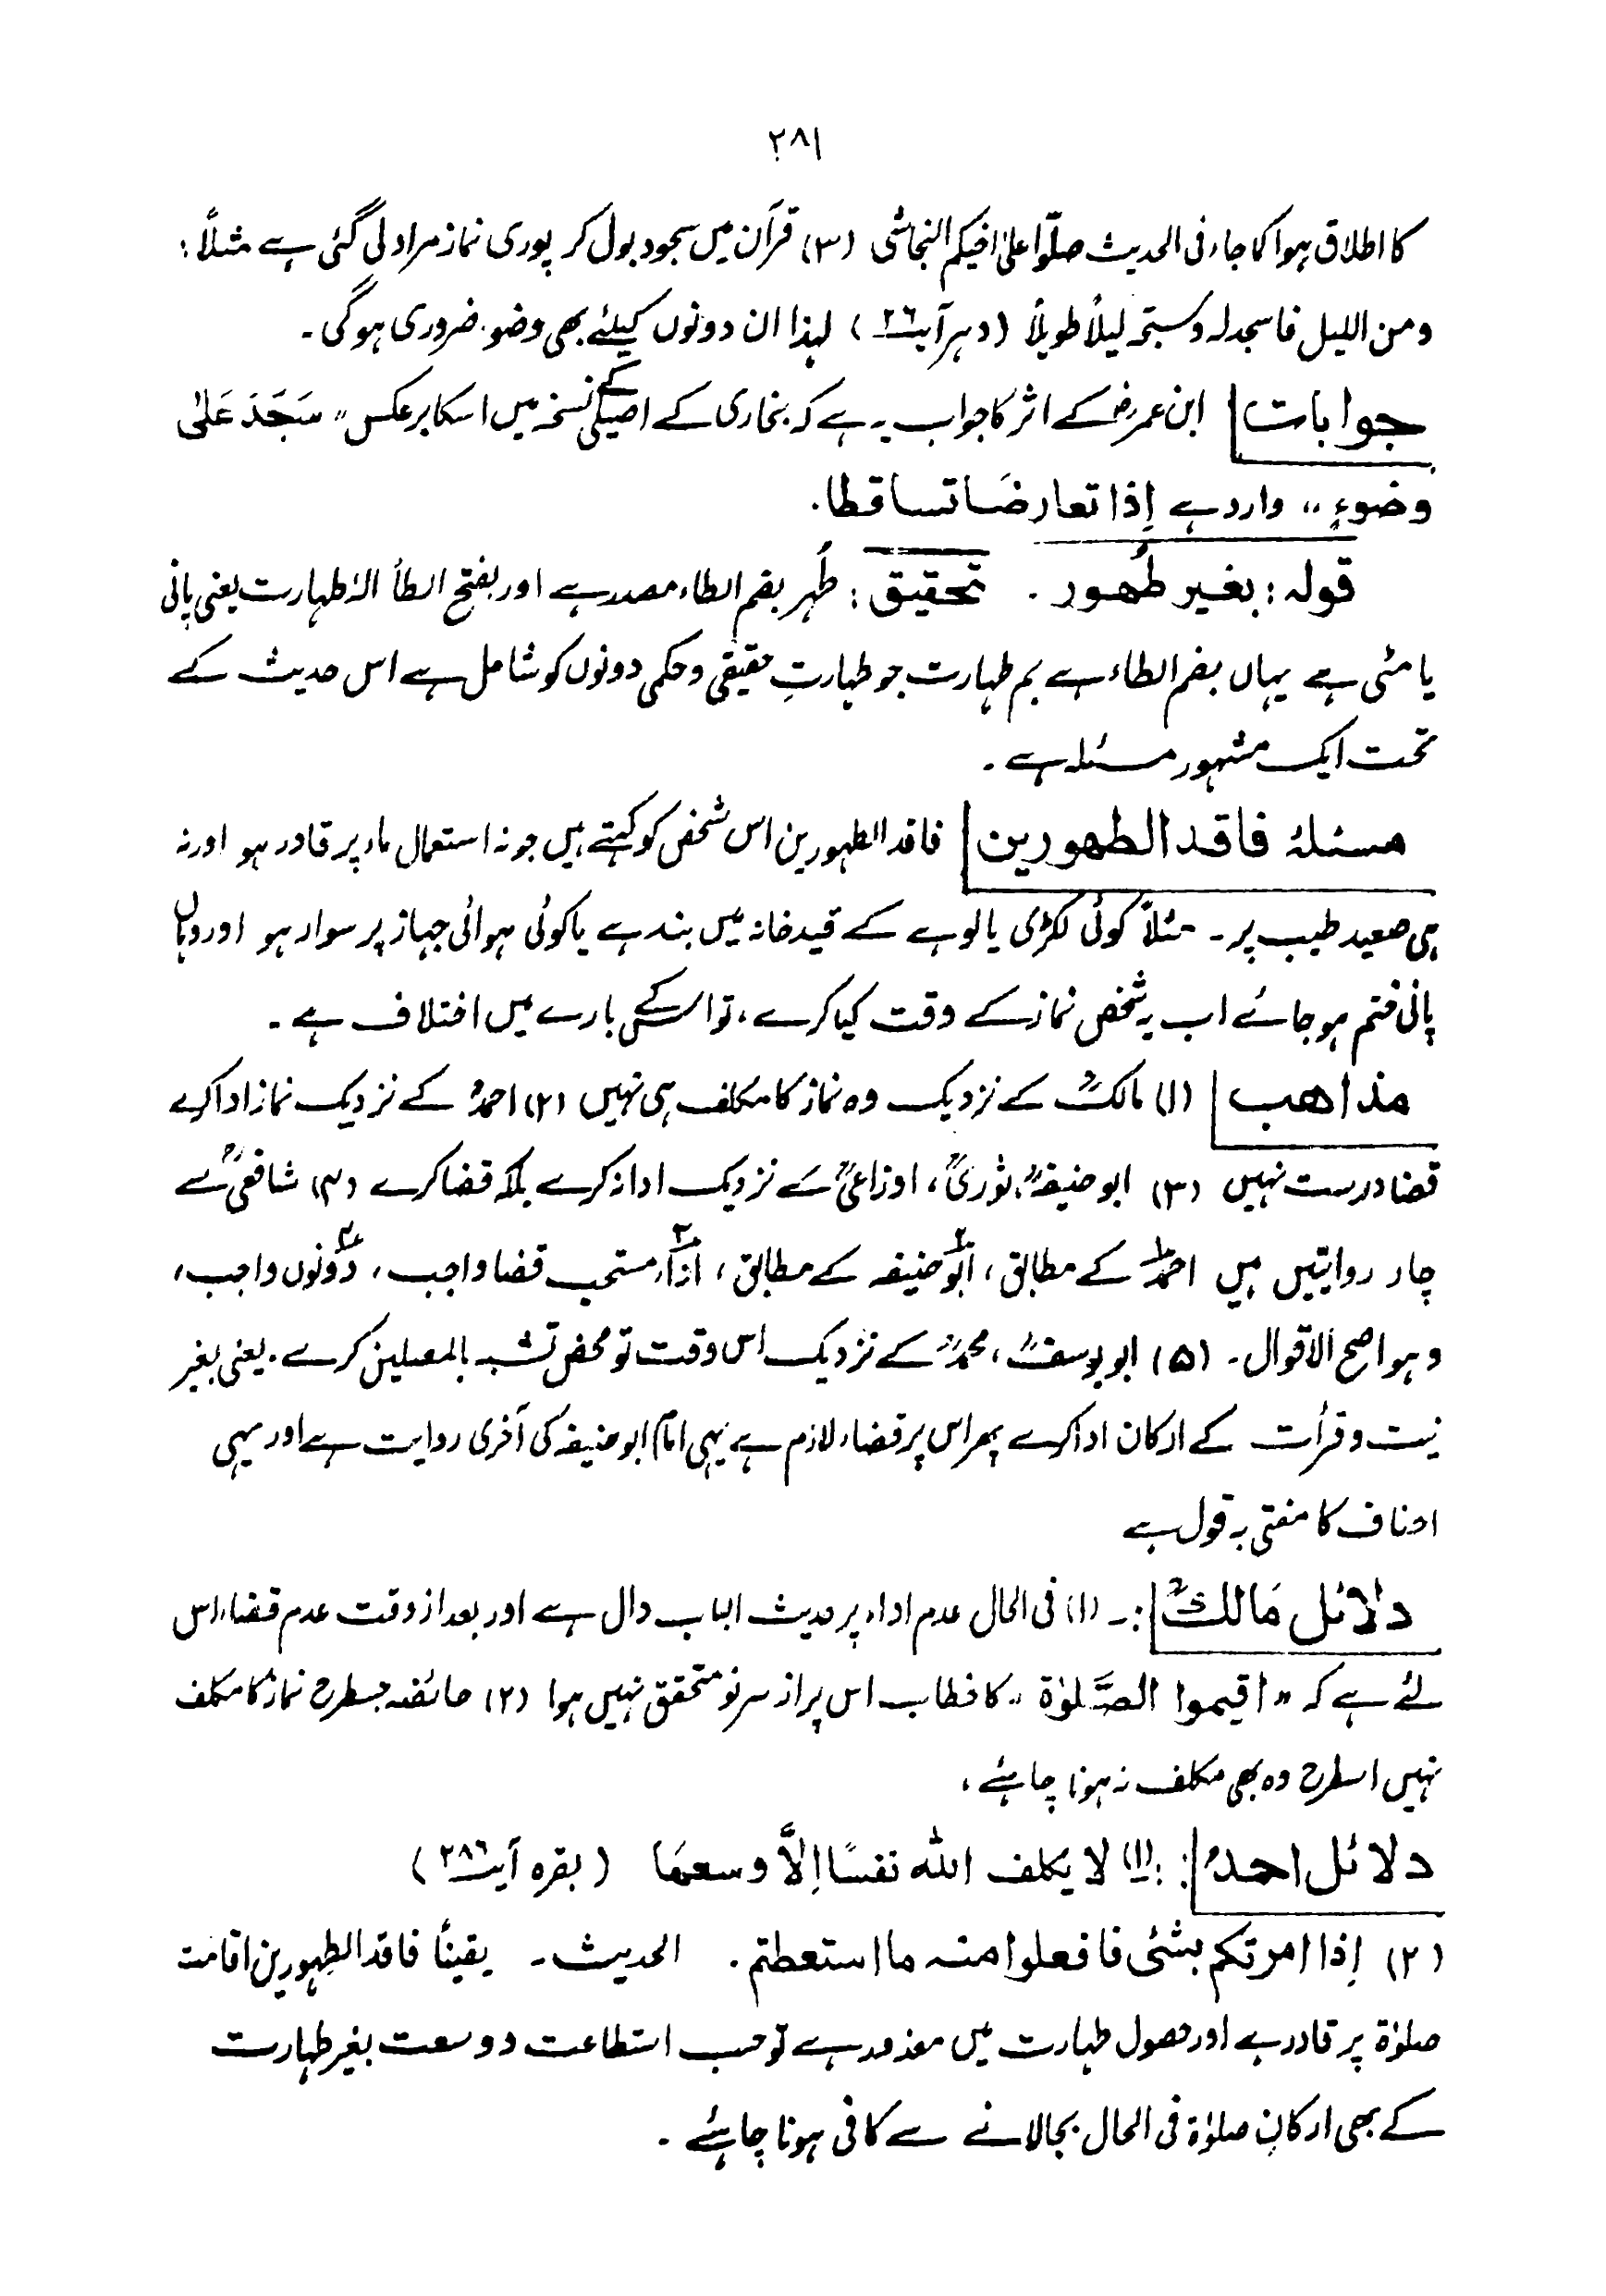 ۲۸۱
کا اطلاق ہوا کما جاء فی الحدیث صلّوا علیٰ اخیکم النجاشی (۳) قرآن میں سجود بول کر پوری نماز مراد لی گئی ہے مثلاً :
ومن اللیل فاسجد لہ وسبّحہ لیلاً طویلاً (دہر آیت ۲۶) لہذا ان دونوں کیلئے بھی وضوء ضروری ہوگی ۔
جوابات ابن عمرؓ کے اثر کا جواب یہ ہے کہ بخاری کے اصیلی کے نسخہ میں اسکا برعکس " سَجَدَ عَلیٰ
وضوءٍ " وارد ہے إِذا تعارضَا تساقطا.
قولہ : بغیر طُھور . تحقیق : طُہر بضم الطاء مصدر ہے اور بفتح الطأ الۂ طہارت یعنی پانی
یا مٹی ہے یہاں بضم الطاء ہے بم طہارت جو طہارتِ حقیقی وحکمی دونوں کو شامل ہے اس حدیث کے
تحت ایک مشہور مسئلہ ہے ۔
مسئلۂ فاقد الطھورین فاقد الطہورین اس شخص کو کہتے ہیں جو نہ استعمال ماء پر قادر ہو اور نہ
ہی صعید طیب پر ۔ مثلاً کوئی لکڑی یا لوہے کے قیدخانہ میں بند ہے یا کوئی ہوائی جہاز پر سوار ہو اور وہاں
پانی ختم ہو جائے اب یہ شخص نماز کے وقت کیا کرے ، تو اسکے بارے میں اختلاف ہے ۔
مذاھب (۱) مالکؒ کے نزدیک وہ نماز کا مکلف ہی نہیں (۲) احمدؒ کے نزدیک نماز ادا کرے
قضا درست نہیں (۳) ابو حنیفہؒ ، ثوریؒ ، اوزاعیؒ کے نزدیک ادا نہ کرے بلکہ قضا کرے (۴) شافعیؒ سے
چار روایتیں ہیں ۱؎ احمدؒ کے مطابق ، ۲؎ ابوحنیفہ کے مطابق ، ۳؎ اداء مستحب قضا واجب ، ۴؎ دونوں واجب ،
وہو اصح الاقوال ۔ (۵) ابو یوسفؒ ، محمدؒ کے نزدیک اس وقت تو محض تشبہ بالمصلین کرے ۔ یعنی بغیر
نیت و قرأت کے ارکان ادا کرے پھر اس پر قضاء لازم ہے یہی امام ابوحنیفہ کی آخری روایت ہے اور یہی
احناف کا مفتی بہ قول ہے
دلائل مَالکؒ :۔ (۱) فی الحال عدم اداء پر حدیث الباب دال ہے اور بعد از وقت عدم قضاء اس
لئے ہے کہ " اقیموا الصَّلوٰۃ " کا خطاب اس پر از سر نو متحقق نہیں ہوا (۲) حائضہ جسطرح نماز کا مکلف
نہیں اسطرح وہ بھی مکلف نہ ہونا چاہئے ،
دلائل احمدؒ : (۱) لا یکلف اللہ نفسًا إلاَّ وسعھَا (بقرہ آیت ۲۸۶)
(۲) إذا امرتکم بشئی فافعلوا منہ ما استعطتم . الحدیث ۔ یقیناً فاقد الطہورین اقامت
صلوٰۃ پر قادر ہے اور حصول طہارت میں معذور ہے تو حسب استطاعت و وسعت بغیر طہارت
کے بھی ارکانِ صلوٰۃ فی الحال بجا لانے سے کافی ہونا چاہئے ۔